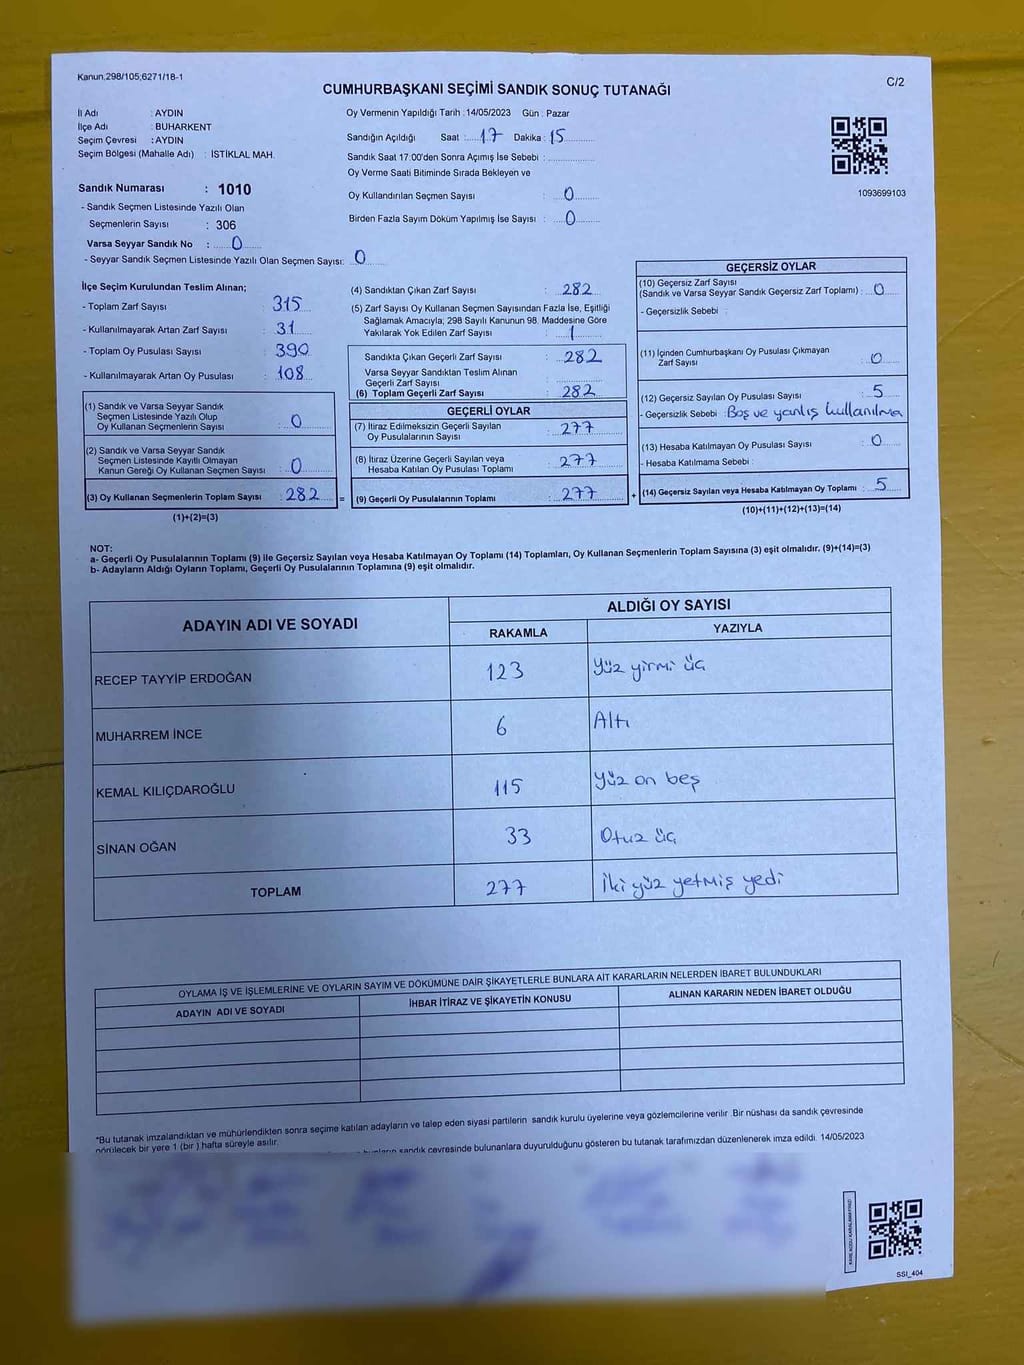 Kanun,298/105;6271/18-1
C/2
CUMHURBAŞKANI SEÇİMİ SANDIK SONUÇ TUTANAĞI
İl Adı : AYDIN
İlçe Adı : BUHARKENT
Seçim Çevresi : AYDIN
Seçim Bölgesi (Mahalle Adı) : İSTİKLAL MAH.
Oy Vermenin Yapıldığı Tarih : 14/05/2023 Gün : Pazar
Sandığın Açıldığı Saat : 17 Dakika : 15
Sandık Saat 17:00'den Sonra Açımış İse Sebebi :
Oy Verme Saati Bitiminde Sırada Bekleyen ve
Oy Kullandırılan Seçmen Sayısı : 0
Birden Fazla Sayım Döküm Yapılmış İse Sayısı : 0
1093699103
Sandık Numarası : 1010
- Sandık Seçmen Listesinde Yazılı Olan
Seçmenlerin Sayısı : 306
Varsa Seyyar Sandık No : 0
- Seyyar Sandık Seçmen Listesinde Yazılı Olan Seçmen Sayısı: 0
İlçe Seçim Kurulundan Teslim Alınan;
- Toplam Zarf Sayısı : 315
- Kullanılmayarak Artan Zarf Sayısı : 31
- Toplam Oy Pusulası Sayısı : 390
- Kullanılmayarak Artan Oy Pusulası : 108
(1) Sandık ve Varsa Seyyar Sandık
Seçmen Listesinde Yazılı Olup
Oy Kullanan Seçmenlerin Sayısı : 0
(2) Sandık ve Varsa Seyyar Sandık
Seçmen Listesinde Kayıtlı Olmayan
Kanun Gereği Oy Kullanan Seçmen Sayısı : 0
(3) Oy Kullanan Seçmenlerin Toplam Sayısı : 282
(1)+(2)=(3)
(4) Sandıktan Çıkan Zarf Sayısı : 282
(5) Zarf Sayısı Oy Kullanan Seçmen Sayısından Fazla İse, Eşitliği
Sağlamak Amacıyla; 298 Sayılı Kanunun 98. Maddesine Göre
Yakılarak Yok Edilen Zarf Sayısı : 1
Sandıkta Çıkan Geçerli Zarf Sayısı : 282
Varsa Seyyar Sandıktan Teslim Alınan
Geçerli Zarf Sayısı :
(6) Toplam Geçerli Zarf Sayısı : 282
GEÇERLİ OYLAR
(7) İtiraz Edilmeksizin Geçerli Sayılan
Oy Pusulalarının Sayısı : 277
(8) İtiraz Üzerine Geçerli Sayılan veya
Hesaba Katılan Oy Pusulası Toplamı : 277
= (9) Geçerli Oy Pusulalarının Toplamı : 277
GEÇERSİZ OYLAR
(10) Geçersiz Zarf Sayısı
(Sandık ve Varsa Seyyar Sandık Geçersiz Zarf Toplamı) : 0
- Geçersizlik Sebebi :
(11) İçinden Cumhurbaşkanı Oy Pusulası Çıkmayan
Zarf Sayısı : 0
(12) Geçersiz Sayılan Oy Pusulası Sayısı : 5
- Geçersizlik Sebebi : Boş ve yanlış kullanılma
(13) Hesaba Katılmayan Oy Pusulası Sayısı : 0
- Hesaba Katılmama Sebebi :
+ (14) Geçersiz Sayılan veya Hesaba Katılmayan Oy Toplamı : 5
(10)+(11)+(12)+(13)=(14)
NOT:
a- Geçerli Oy Pusulalarının Toplamı (9) ile Geçersiz Sayılan veya Hesaba Katılmayan Oy Toplamı (14) Toplamları, Oy Kullanan Seçmenlerin Toplam Sayısına (3) eşit olmalıdır. (9)+(14)=(3)
b- Adayların Aldığı Oyların Toplamı, Geçerli Oy Pusulalarının Toplamına (9) eşit olmalıdır.
ADAYIN ADI VE SOYADI
ALDIĞI OY SAYISI
RAKAMLA YAZIYLA
RECEP TAYYİP ERDOĞAN 123 Yüz yirmi üç
MUHARREM İNCE 6 Altı
KEMAL KILIÇDAROĞLU 115 Yüz on beş
SİNAN OĞAN 33 Otuz üç
TOPLAM 277 İki yüz yetmiş yedi
OYLAMA İŞ VE İŞLEMLERİNE VE OYLARIN SAYIM VE DÖKÜMÜNE DAİR ŞİKAYETLERLE BUNLARA AİT KARARLARIN NELERDEN İBARET BULUNDUKLARI
ADAYIN ADI VE SOYADI İHBAR İTİRAZ VE ŞİKAYETİN KONUSU ALINAN KARARIN NEDEN İBARET OLDUĞU
*Bu tutanak imzalandıktan ve mühürlendikten sonra seçime katılan adayların ve talep eden siyasi partilerin sandık kurulu üyelerine veya gözlemcilerine verilir. Bir nüshası da sandık çevresinde
görülecek bir yere 1 (bir ) hafta süreyle asılır.
sandık çevresinde bulunanlara duyurulduğunu gösteren bu tutanak tarafımızdan düzenlenerek imza edildi. 14/05/2023
SSI_404